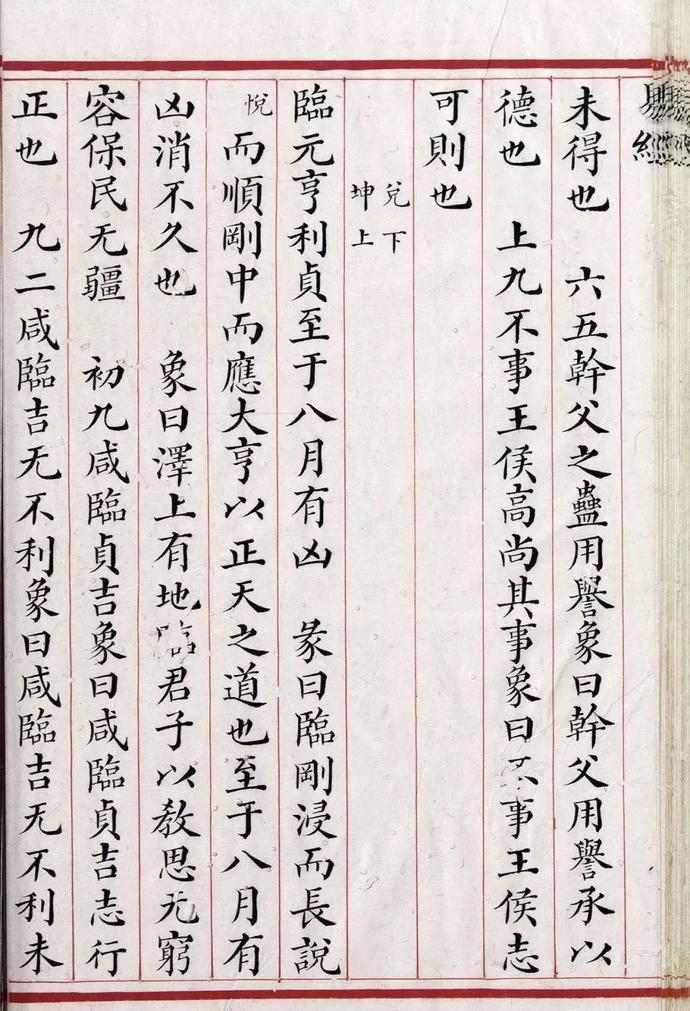 易經
未得也　六五幹父之蠱用譽象曰幹父用譽承以
德也　上九不事王侯高尚其事象曰不事王侯志
可則也
兌下
坤上
臨元亨利貞至于八月有凶　彖曰臨剛浸而長說
悅
而順剛中而應大亨以正天之道也至于八月有
凶消不久也　象曰澤上有地臨君子以教思无窮
容保民无疆　初九咸臨貞吉象曰咸臨貞吉志行
正也　九二咸臨吉无不利象曰咸臨吉无不利未